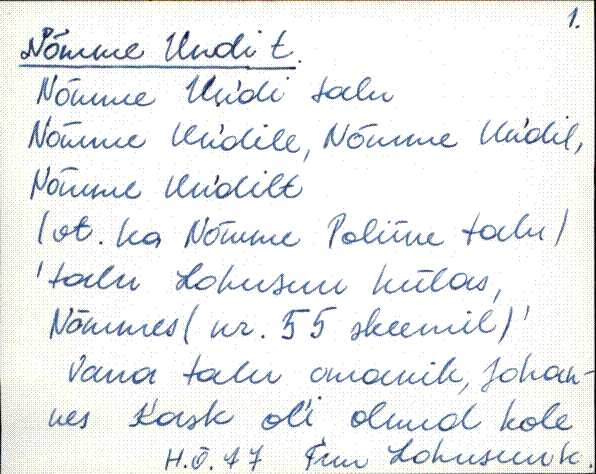 1.
Nõmme Undi t.
Nõmme Un'di talu
Nõmme Un'dile, Nõmme Un'dil,
Nõmme Un'dilt
(vt. ka Nõmme Poliine talu)
'talu Lohusuu külas,
Nõmmes (nr. 55 skeemil)'
Vana talu omanik, Johan-
nes Kask oli olnud kole
H.O. 77 Lohusuu k.